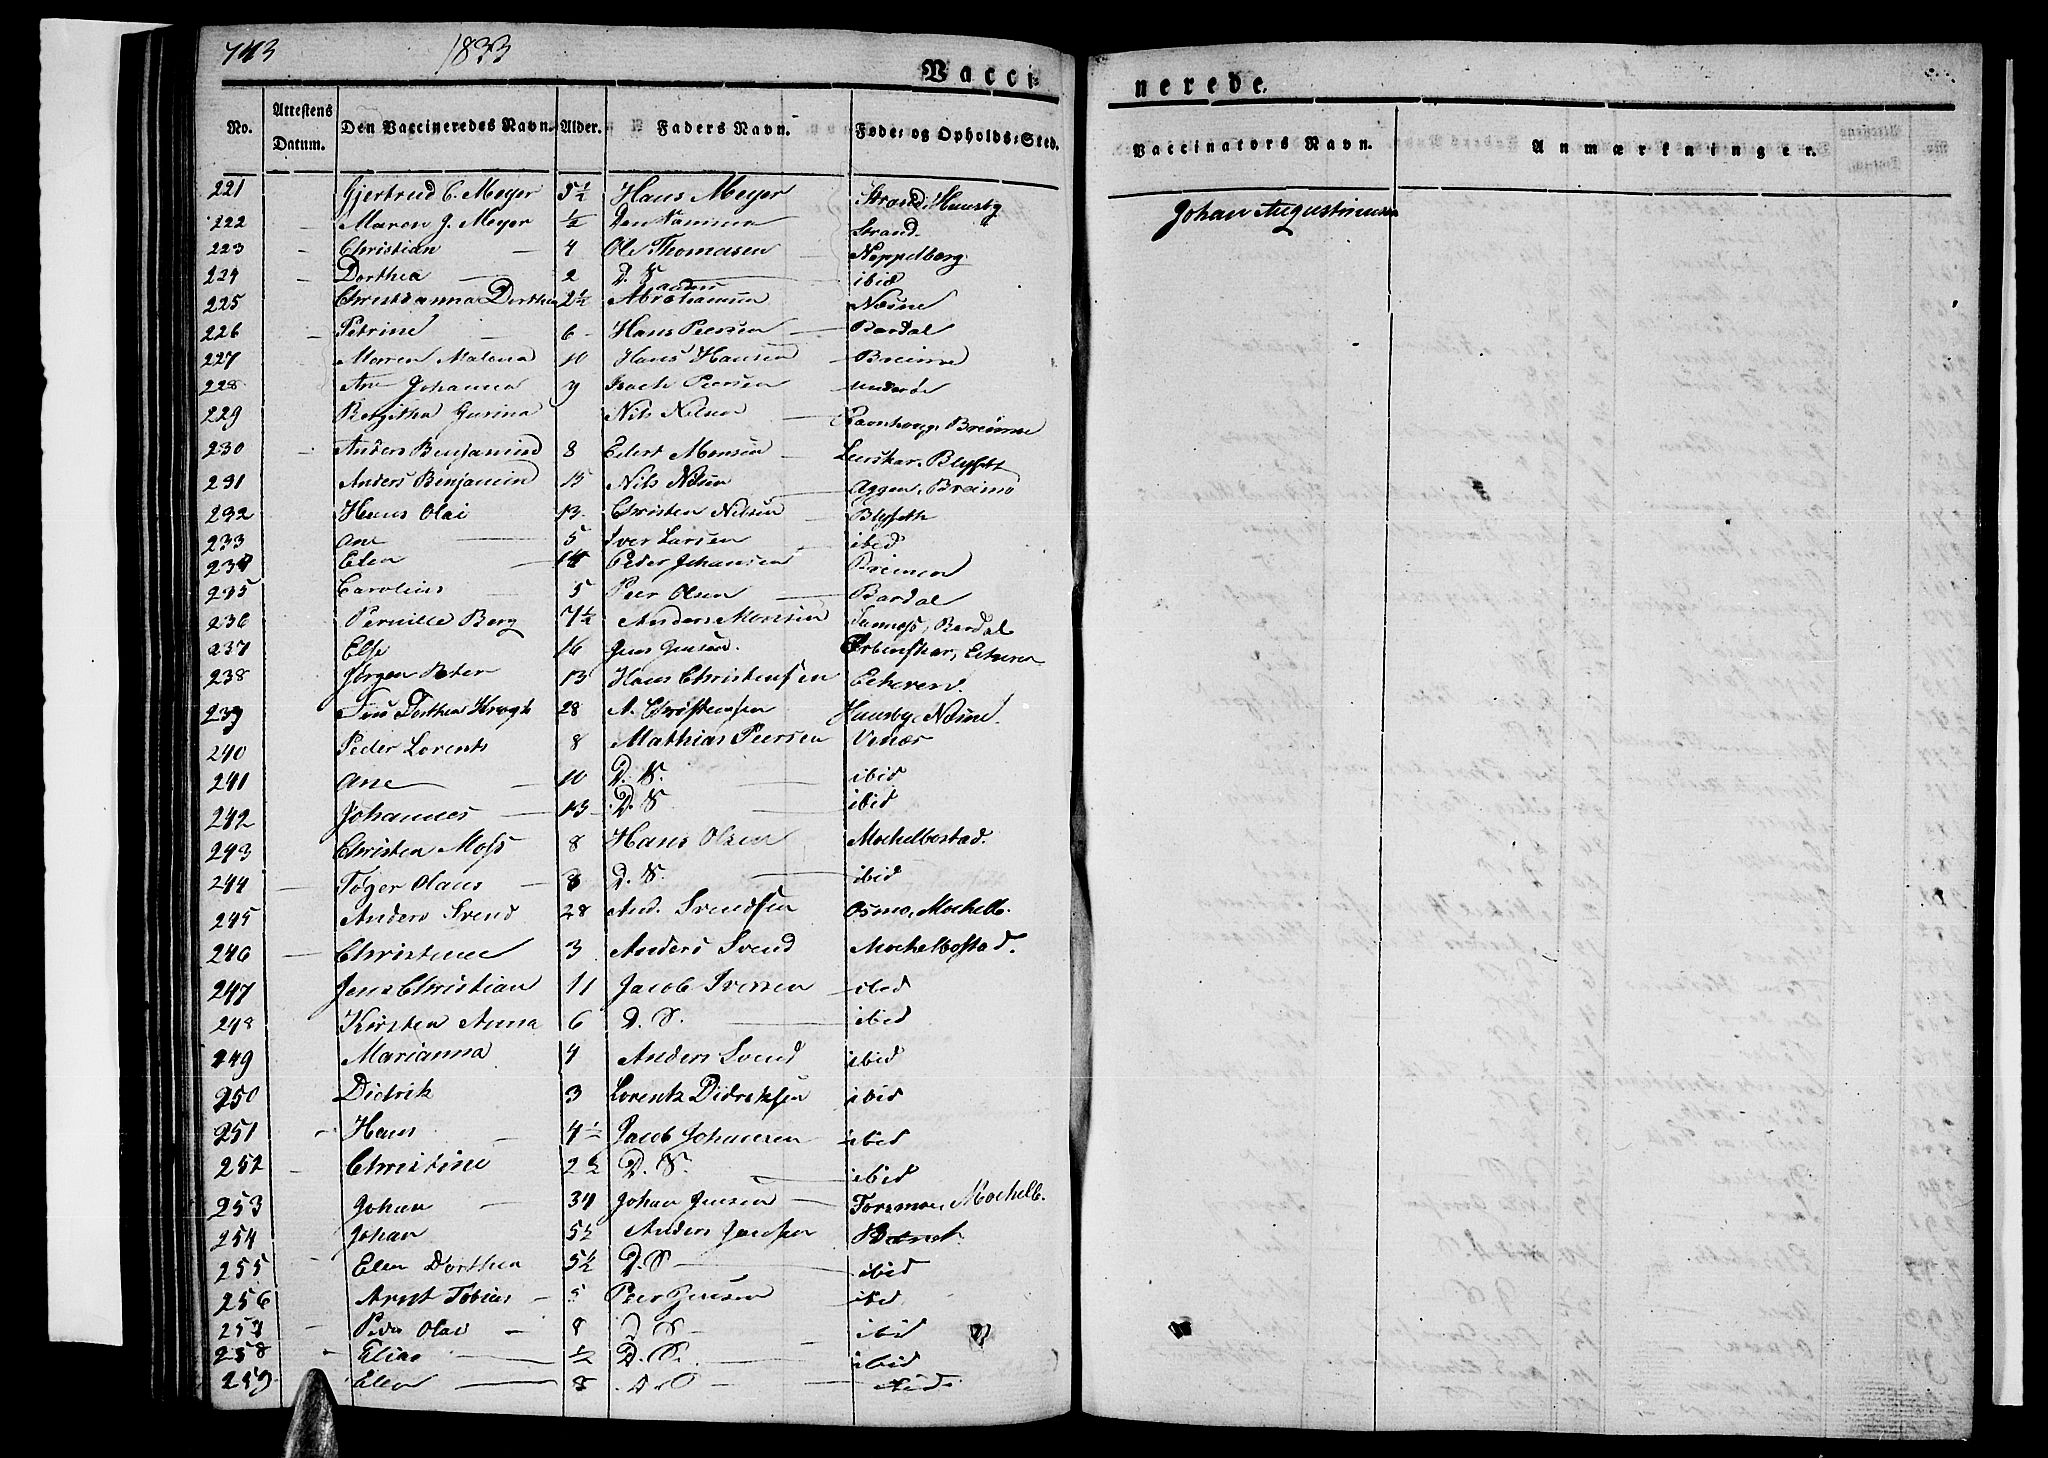 743 1833
Vacci
nerede.
No. Attestens Datum. Den Vaccineredes Navn. Alder. Faders Navn. Føde- og Opholds-Sted.
Vaccinators Navn. Anmærkninger.
221 Gjertrud C. Meyer 5½ Hans Meyer Strand, Huusby Johan Augustinusen
222 Maren J. Meyer ½ Den Samme Strand
223 Christian 4 Ole Thomesen Neppelberg
224 Dorthea 2 D. S. ibid
225 Christianna Dorthea 2½ Abrahamsen Nesne
226 Petrine 6 Hans Peersen Bardal
227 Maren Malena 10 Hans Hansen Breimo
228 Ane Johanna 9 Isach Peersen
229 Bergitha Gurina Nils Nilsen Ravnhoug, Breimo
230 Anders Benjamin 8 Edert Monsen Leirskar, Blysett
231 Anders Benjamin 15 Nils Nilsen Aggen, Breimo
232 Hans Olai 13 Christen Nilsen Blyseth
233 Ane 5 Iver Larsen ibid
234 Elen 14 Peder Johansen Breimoe
235 Carolius 5 Peer Olsen Bardal
236 Pernille Berg 7½ Anders Monsen Sannes, Bardal
237 Else 16 Jens Jensen.
238 Jørgen Peter 13 Hans Christensen
239 Dorthea Krogh 28 A. Christensen Huusby, Nesne.
240 Peder Lorents 8 Mathias Peersen
241 Ane 10 D. S. ibid
242 Johannes 13 D. S ibid
243 Christen Moss 8 Hans Olsen Mochelbostad.
244 Tøger Olaus 8 D. S. ibid
245 Anders Svend 28 And. Svendsen Osmo, Mochelb.
246 Christine 3 Anders Svend Mochelbostad.
247 Jens Christian 11 Jacob Iversen ibid
248 Kirsten Anna 6 D. S. ibid
249 Marianna 4 Anders Svend ibid
250 Didrik 3 Lorentz Didriksen ibid
251 Hans 4½ Jacob Johansen ibid
252 Christine 2½ D. S. ibid
253 Johan 34 Johan Jensen Forsmoe, Mochelb.
254 Johan 5½ Anders Jensen
255 Elen Dorthea 5½ D. S ibid
256 Arnt Tobias 5 Peer Jensen ibid
257 Peder Olai 8 D S ibid
258 Elias ½ D. S. ibid
259 Elen 8 D S ibid